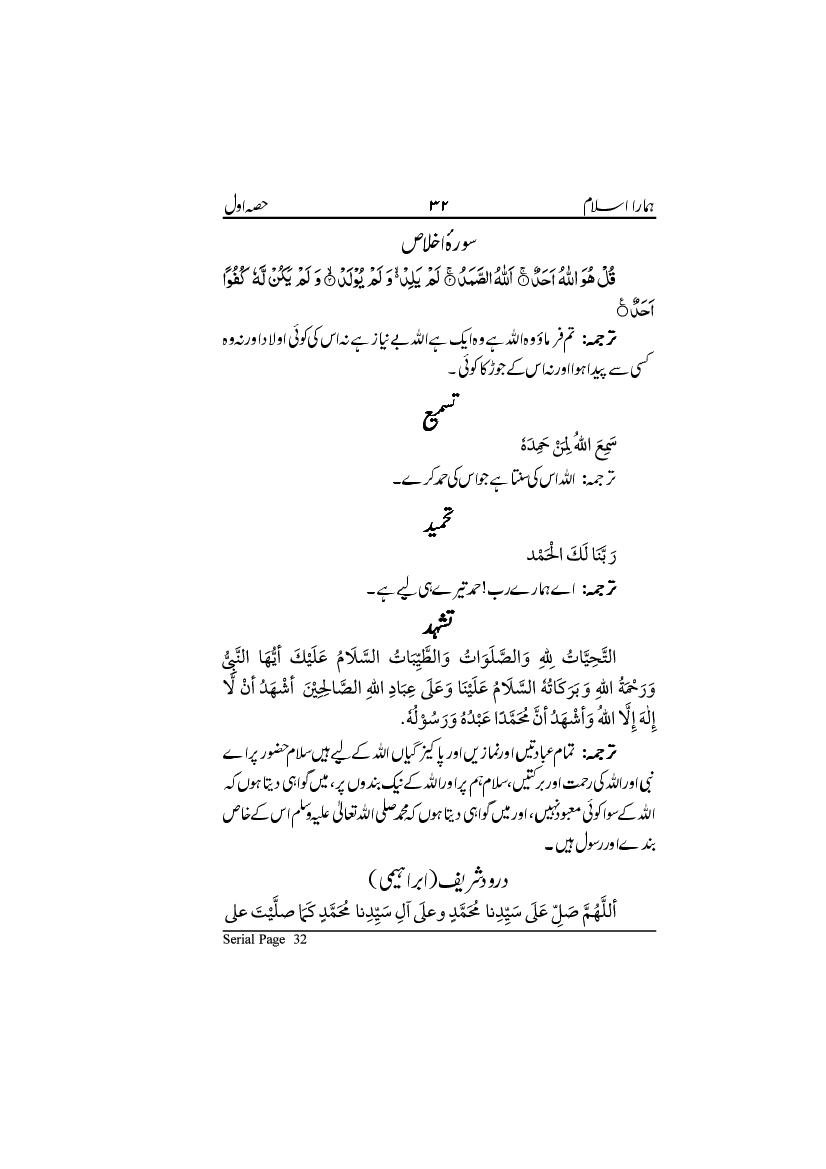 ہمارا اسلام ۳۲ حصہ اول
سورۂ اخلاص
قُلْ هُوَ اللّٰهُ اَحَدٌ ۚ اَللّٰهُ الصَّمَدُ ۚ لَمْ یَلِدْ ۙ وَ لَمْ یُوْلَدْ ۙ وَ لَمْ یَكُنْ لَّهٗ كُفُوًا
اَحَدٌ ۠
ترجمہ: تم فرماؤ وہ اللہ ہے وہ ایک ہے اللہ بے نیاز ہے نہ اس کی کوئی اولاد اور نہ وہ
کسی سے پیدا ہوا اور نہ اس کے جوڑ کا کوئی ۔
تسمیع
سَمِعَ اللهُ لِمَنْ حَمِدَهٗ
ترجمہ: اللہ اس کی سنتا ہے جو اس کی حمد کرے۔
تحمید
رَبَّنَا لَكَ الْحَمْد
ترجمہ: اے ہمارے رب! حمد تیرے ہی لیے ہے۔
تشہد
التَّحِيَّاتُ لِلّٰهِ وَالصَّلَوَاتُ وَالطَّيِّبَاتُ السَّلَامُ عَلَيْكَ أَيُّهَا النَّبِيُّ
وَرَحْمَةُ اللهِ وَبَرَكَاتُهٗ السَّلَامُ عَلَيْنَا وَعَلَى عِبَادِ اللهِ الصَّالِحِيْنَ أَشْهَدُ أَنْ لَّا
إِلٰهَ إِلَّا اللهُ وَأَشْهَدُ أَنَّ مُحَمَّدًا عَبْدُهٗ وَرَسُوْلُهٗ.
ترجمہ: تمام عبادتیں اور نمازیں اور پاکیزگیاں اللہ کے لیے ہیں سلام حضور پر اے
نبی اور اللہ کی رحمت اور برکتیں، سلام ہم پر اور اللہ کے نیک بندوں پر، میں گواہی دیتا ہوں کہ
اللہ کے سوا کوئی معبود نہیں، اور میں گواہی دیتا ہوں کہ محمد صلی اللہ تعالیٰ علیہ وسلم اس کے خاص
بندے اور رسول ہیں ۔
درود شریف (ابراہیمی)
أَللّٰهُمَّ صَلِّ عَلَى سَيِّدِنا مُحَمَّدٍ وعلَى آلِ سَيِّدِنا مُحَمَّدٍ كَمَا صلَّيْتَ على
Serial Page 32